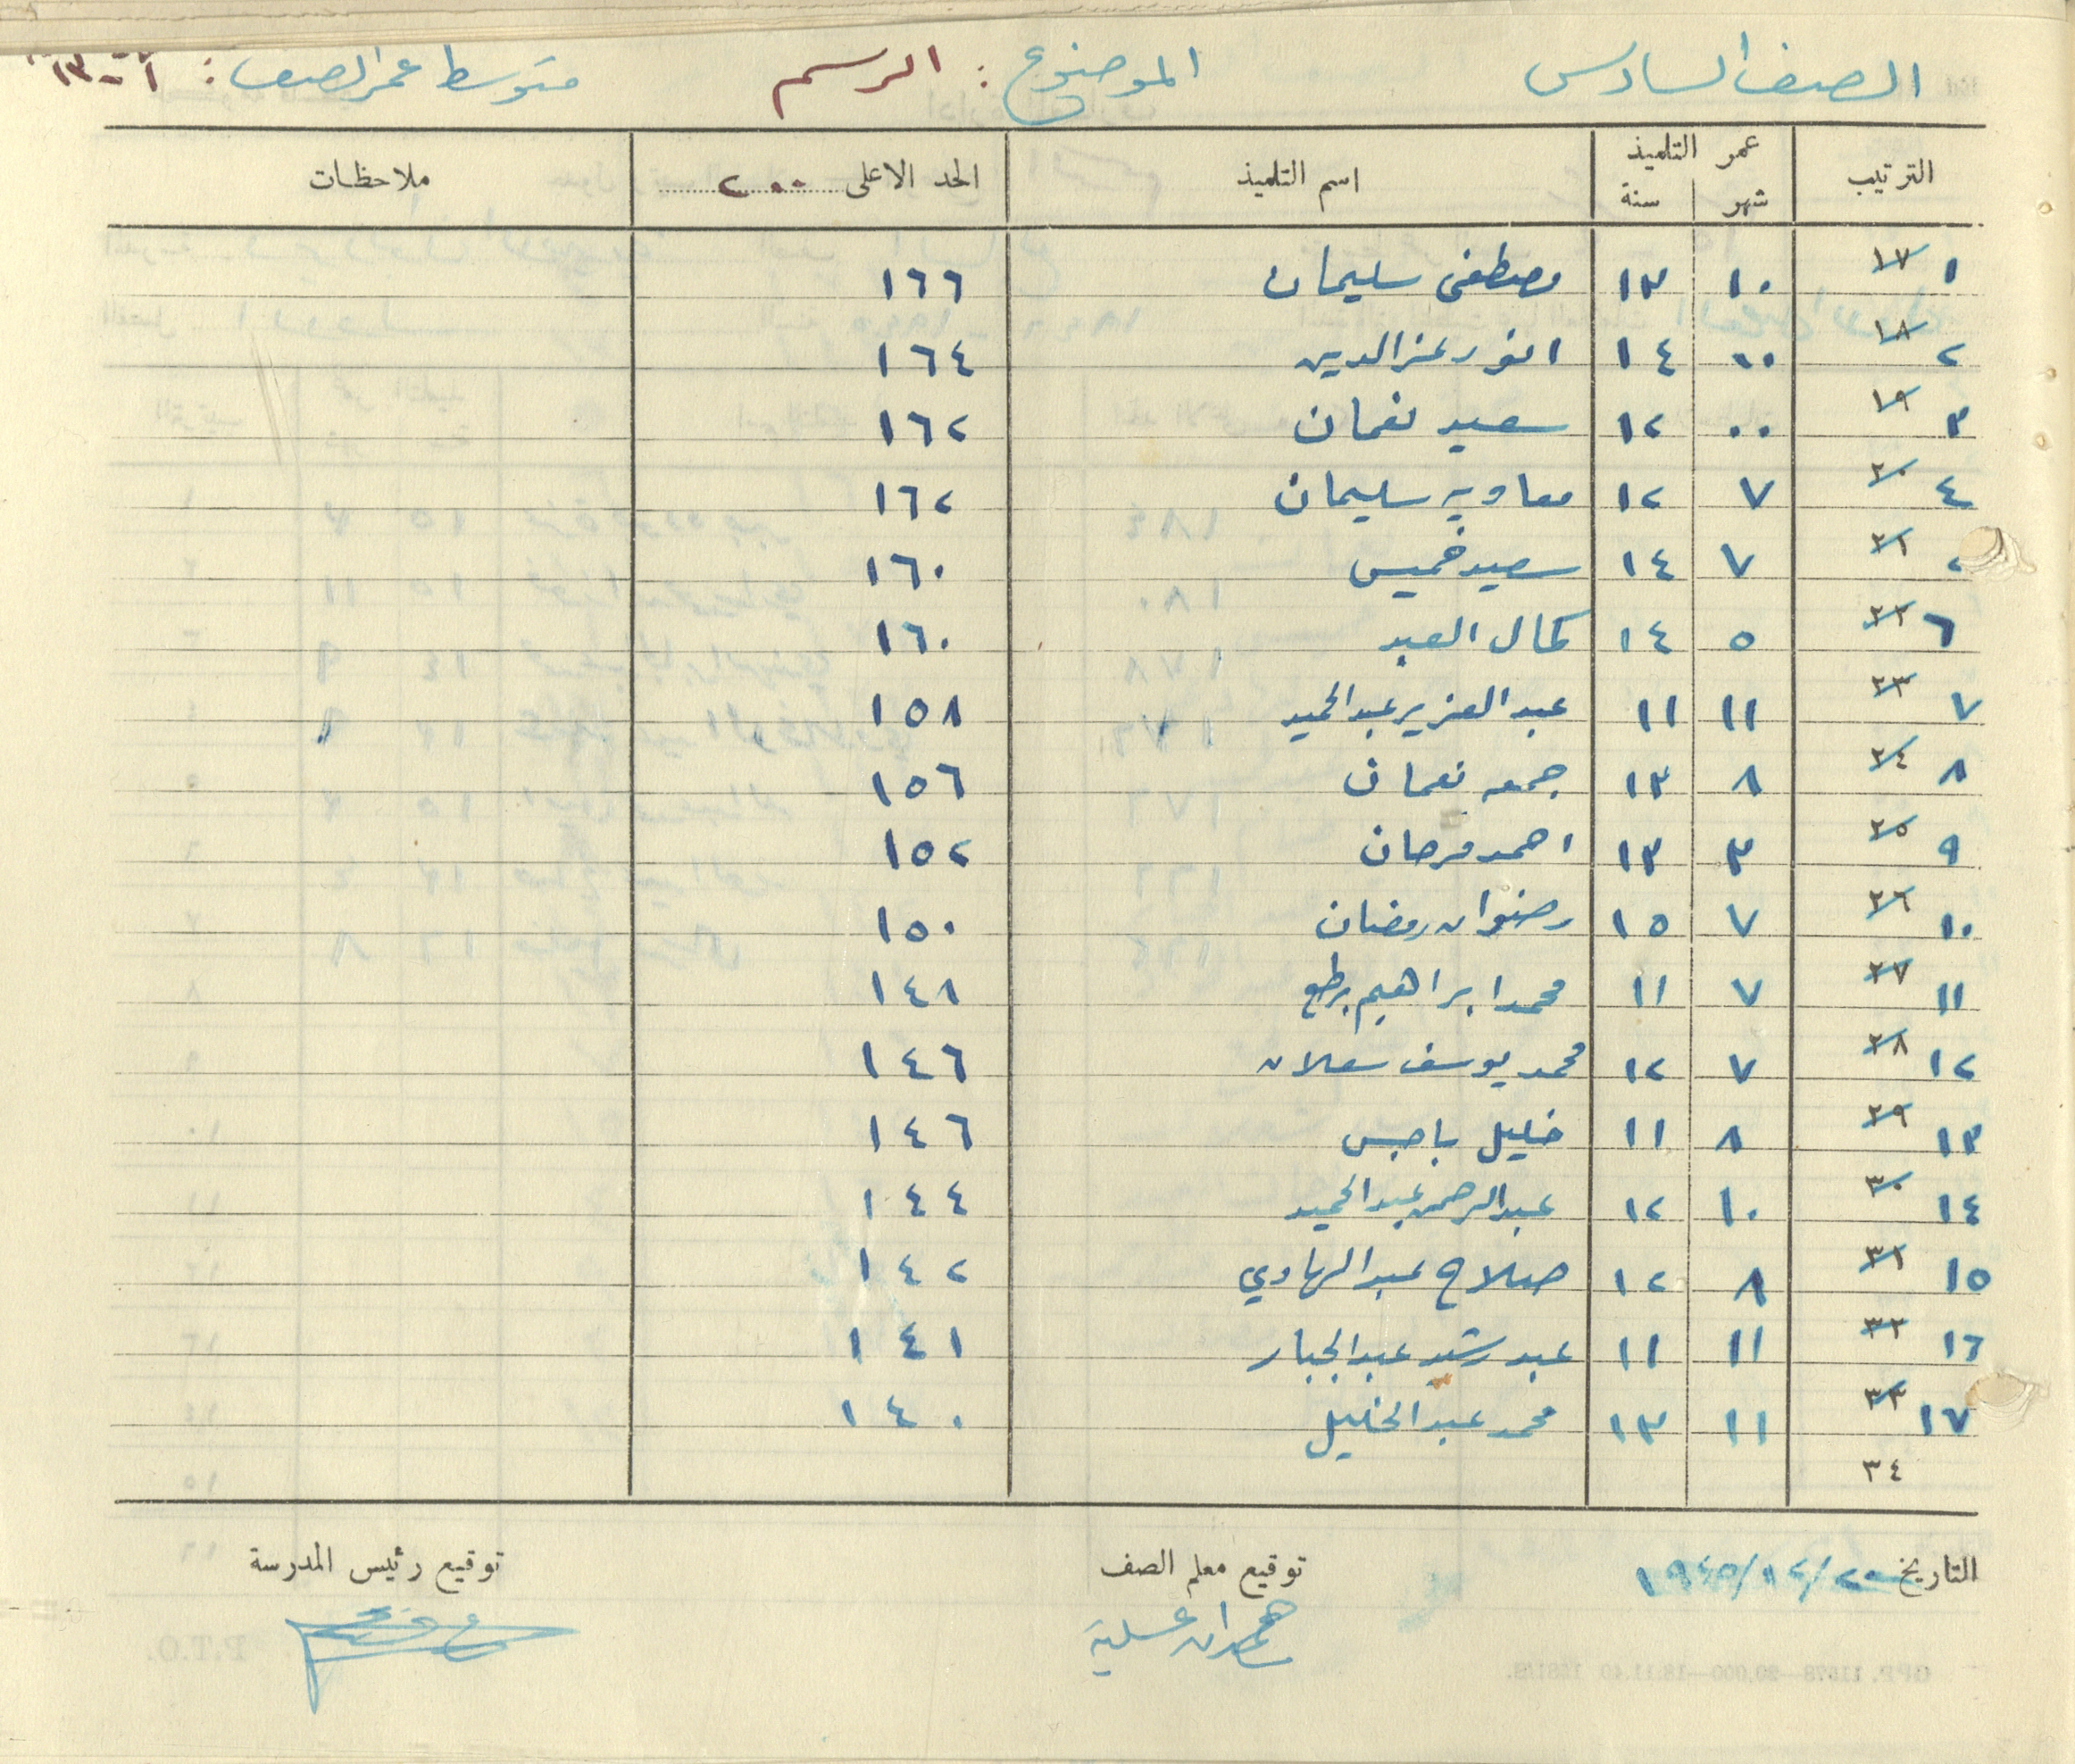 الصف السادس الموضوع : الرسم متوسط عمر الصف :
الترتيب عمر التلميذ اسم التلميذ الحد الاعلى ٢٠٠ ملاحظات
شهر سنة
١ ١٧ ١٠ ١٣ مصطفى سليمان ١٦٦
٢ ١٨ ٠٠ ١٤ انور عز الدين ١٦٤
٣ ١٩ ٠٠ ١٢ سعيد نعمان ١٦٢
٤ ٢٠ ٧ ١٢ معاويه سليمان ١٦٢
٢١ ٧ ١٤ سعيد خميس ١٦٠
٦ ٢٢ ٥ ١٤ كمال العبد ١٦٠
٧ ٢٣ ١١ ١١ عبد العزيز عبد الحميد ١٥٨
٨ ٢٤ ٨ ١٣ جمعه نعمان ١٥٦
٩ ٢٥ ٣ ١٣ احمد فرحان ١٥٢
١٠ ٢٦ ٧ ١٥ رضوان رمضان ١٥٠
١١ ٢٧ ٧ ١١ محمد ابراهيم ١٤٨
١٢ ٢٨ ٧ ١٢ محمد يوسف ١٤٦
١٣ ٢٩ ٨ ١١ خليل باجس ١٤٦
١٤ ٣٠ ١٠ ١٢ عبد الرحمن عبد الحميد ١٤٤
١٥ ٣١ ٨ ١٢ صلاح عبد الهادي ١٤٢
١٦ ٣٢ ١١ ١١ عبد رشيد عبد الجبار ١٤١
١٧ ٣٣ ١١ ١٣ محمد عبد الخليل ١٤٠
٣٤
التاريخ ٢٠/١٢/١٩٤٥ توقيع معلم الصف توقيع رئيس المدرسة